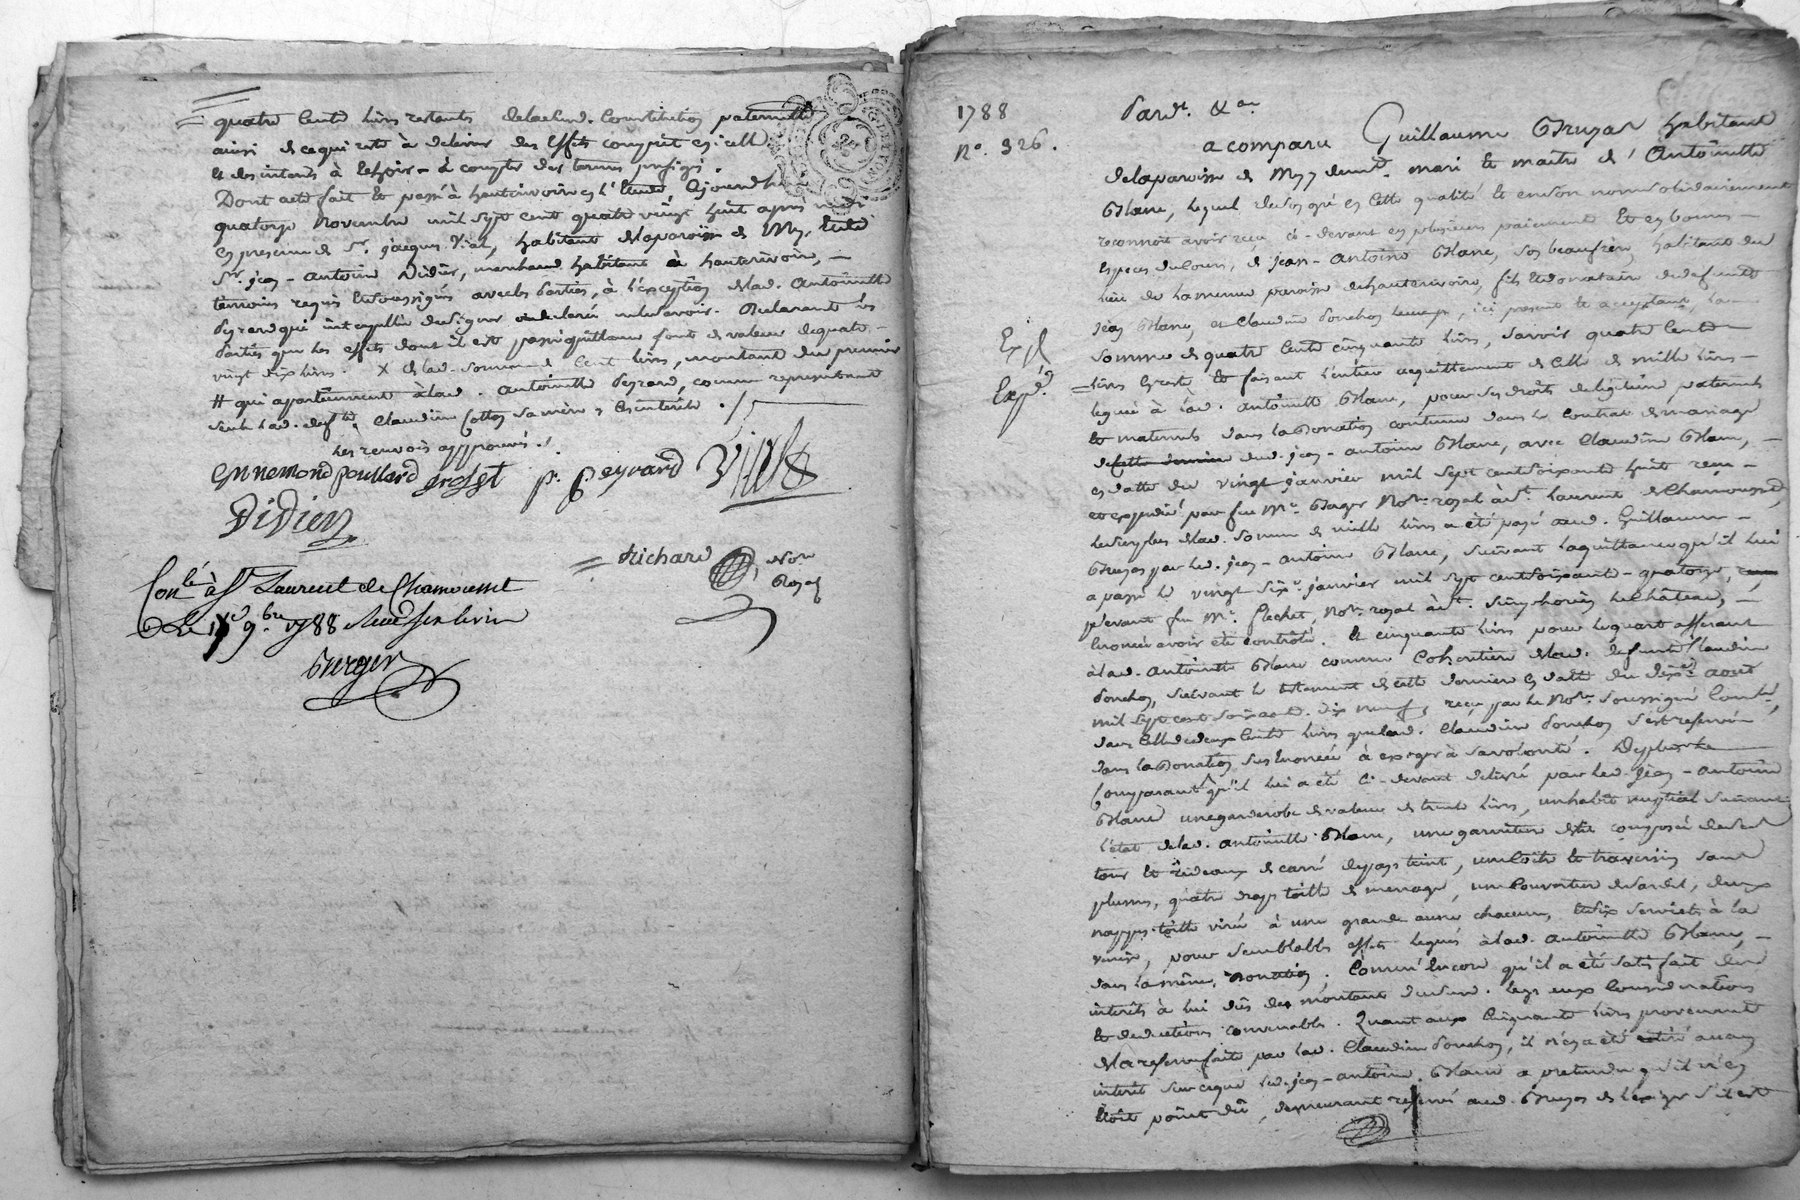 quatre Cents livres restants de la susd. Constitution paternelle
ainsi de ce qui reste à delivrer des effets compris en icelle
et des interets à echoir - à compter des termes prefigés.
Dont acte fait et passé à hauterivoire en l'Etude Ajourdhuy
quatorze Novembre mil sept cent quatre vingt huit après midi
en presence de Sr. jacques Vial, habitant de la paroisse de Meys, et de
Sr. jean - antoine Didier, marchand habitant à hauterivoire, -
temoins requis et soussignés avec les parties, à l'exception de lad. Antoinette
Peyrard qui interpellée de signer a declaré ne le savoir. Declarant les
parties que les effets dont il est passé quittance sont de valeur de quatre -
vingt dix livres. X de lad. somme de Cent livres, montant du premier
# qui appartiennent à lad. antoinette Peyrard, comme representant
seule lad. deffte. Claudine Collon sa mère
les renvois approuvés ./.
Ennemond poullard grosset p. peyrard Viale
Didier
Richard Nore
Royal
Conlé à St Laurent de Chamousset
Le 9bre 1788
Berger
1788
No. 326.
Pardt. &a
a comparu Guillaume Bruyas habitant
de la paroisse de Meys demt. mari et maitre d'Antoinette
Blanc, lequel de son gré en cette qualité et en son nom solidairement
reconnoit avoir reçu ci - devant en plusieurs paiements et en bonnes -
especes du Cours, de jean - antoine Blanc, son beaufrère, habitant du
lieu de la menue paroisse de hauterivoire, fils et donataire de defunts
jean Blanc, et Claudine Ponchon, ici present et acceptant, la
Exp.
somme de quatre Cents cinquante livres, savoir quatre Cents
Expé.
livres en reste et faisant l'entier acquittement de Celle de mille livres -
leguée à lad. antoinette Blanc, pour ses droits de legitime paternels
et maternels dans la Donation contenue dans le Contrat de mariage
dud. jean - antoine Blanc, avec Claudine Blanc, -
en datte du vingt janvier mil sept cent soixante huit reçu -
et expedié par feu Me. Berger Nore. royal à St. Laurent de Chamousset,
le surplus de lad. somme de mille livres a été payé aud. Guillaume -
Bruyas par led. jean - antoine Blanc, suivant la quittance qu'il lui
a passé le vingt six janvier mil sept cent soixante - quatorze,
pdevant feu Me. flechet, Nore. royal à St. Simphorien le Château, -
enoncée avoir été controlé. Et cinquante livres pour le quart afferant
à lad. antoinette Blanc comme Coheritiere de lad. defunte Claudine
Ponchon, suivant le testament de cette derniere en datte du dix août
mil sept cent soixante dix neuf, reçu par le Nore. soussigné Controlé,
dans celle de deux Cents livres que lad. Claudine Ponchon s'est reservée
dans la Donation sus enoncée à exiger à sa volonté. De plus
Comparant qu'il lui a été ci - devant delivré par led. jean - antoine
Blanc une garderobe de valeur de trente livres, un habit nuptial suivant
l'état de lad. antoinette Blanc, une garniture de lit composée de ses
tour et rideaux de carré de pays teint, une Coitte et traversin sans
plumes, quatre draps toille de menage, une Couverture de Sardis, deux
nappes toille virée à une grande aune chacune, et six serviettes à la
venise, pour semblables effets legués à lad. antoinette Blanc, -
dans la même Donation. Comme encore qu'il a été satisfait des
interets à lui dûs du montant du susd. legs eux Considerations
et deductions convenables. Quant aux Cinquante livres provenant
de la reserve faite par lad. Claudine Ponchon, il n'en a été aucun
interêt sur ce que led. jean - antoine Blanc a pretendu qu'il n'en
étoit point dû, demeurant reservé aud. Bruyas de l'exiger s'il est